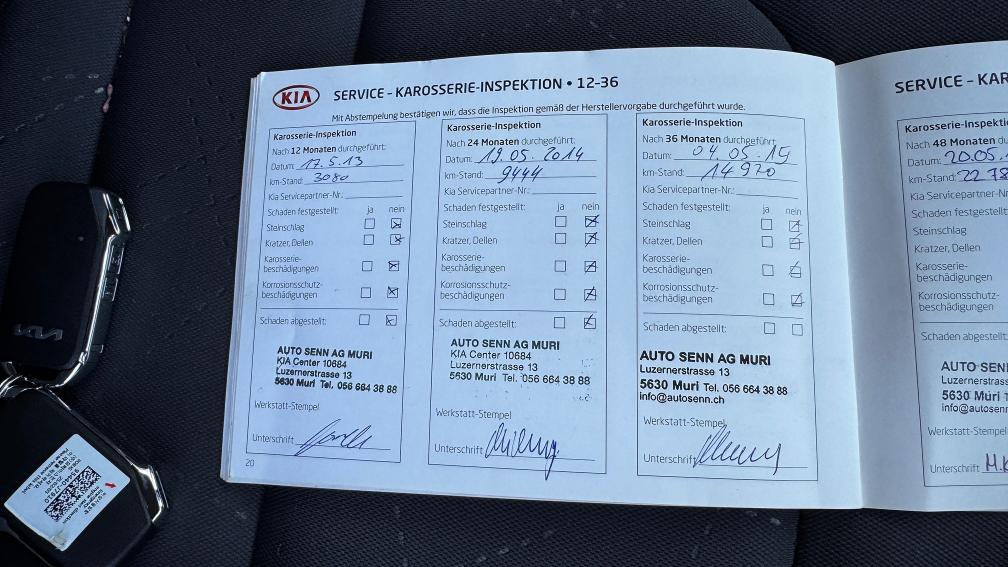 KIA SERVICE – KAROSSERIE-INSPEKTION • 12-36
Mit Abstempelung bestätigen wir, dass die Inspektion gemäß der Herstellervorgabe durchgeführt wurde.
Karosserie-Inspektion
Nach 12 Monaten durchgeführt:
Datum: 17.5.13
km-Stand: 3080
Kia Servicepartner-Nr.:
Schaden festgestellt: ja nein
Steinschlag
Kratzer, Dellen
Karosserie-
beschädigungen
Korrosionsschutz-
beschädigungen
Schaden abgestellt:
AUTO SENN AG MURI
KIA Center 10684
Luzernerstrasse 13
5630 Muri Tel. 056 664 38 88
Werkstatt-Stempel
Unterschrift
20
Karosserie-Inspektion
Nach 24 Monaten durchgeführt:
Datum: 19.05.2014
km-Stand: 9444
Kia Servicepartner-Nr.:
Schaden festgestellt: ja nein
Steinschlag
Kratzer, Dellen
Karosserie-
beschädigungen
Korrosionsschutz-
beschädigungen
Schaden abgestellt:
AUTO SENN AG MURI
KIA Center 10684
Luzernerstrasse 13
5630 Muri Tel. 056 664 38 88
Werkstatt-Stempel
Unterschrift
Karosserie-Inspektion
Nach 36 Monaten durchgeführt:
Datum: 04.05.15
km-Stand: 14920
Kia Servicepartner-Nr.:
Schaden festgestellt: ja nein
Steinschlag
Kratzer, Dellen
Karosserie-
beschädigungen
Korrosionsschutz-
beschädigungen
Schaden abgestellt:
AUTO SENN AG MURI
Luzernerstrasse 13
5630 Muri Tel. 056 664 38 88
info@autosenn.ch
Werkstatt-Stempel
Unterschrift
SERVICE – KAR
Karosserie-Inspekti
Nach 48 Monaten
Datum: 20.05.
km-Stand: 22 78
Kia Servicepartner-
Schaden festgestel
Steinschlag
Kratzer, Dellen
Karosserie-
beschädigungen
Korrosionsschutz-
beschädigungen
Schaden abgestell
AUTO SEN
Luzernerstras
5630 Muri T
info@autosenn
Werkstatt-Stempe
Unterschrift M.K
KIA